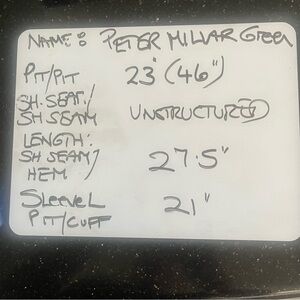 NAME: PETER MILLAR Green
PIT/PIT 23" (46")
SH. SEAT/
SH SEAM UNSTRUCTURED
LENGTH:
SH SEAM/
HEM 27.5"
SLEEVE L 21"
PIT/CUFF